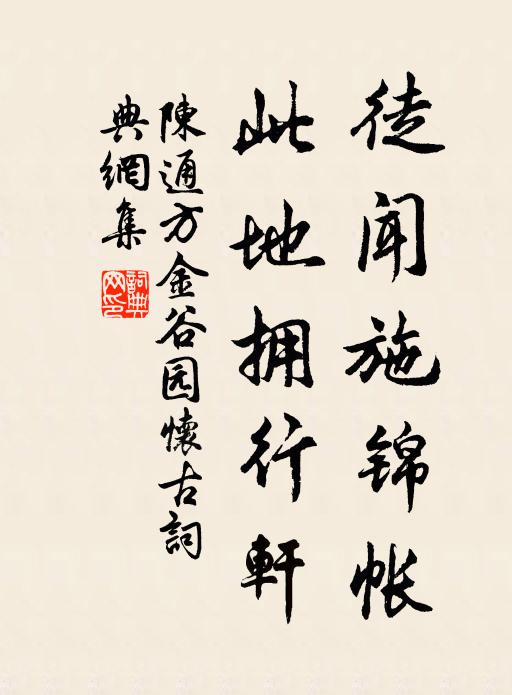 徒闻施锦帐
此地拥行軒
陳通方金谷园懷古詞
典網集
詞典網印